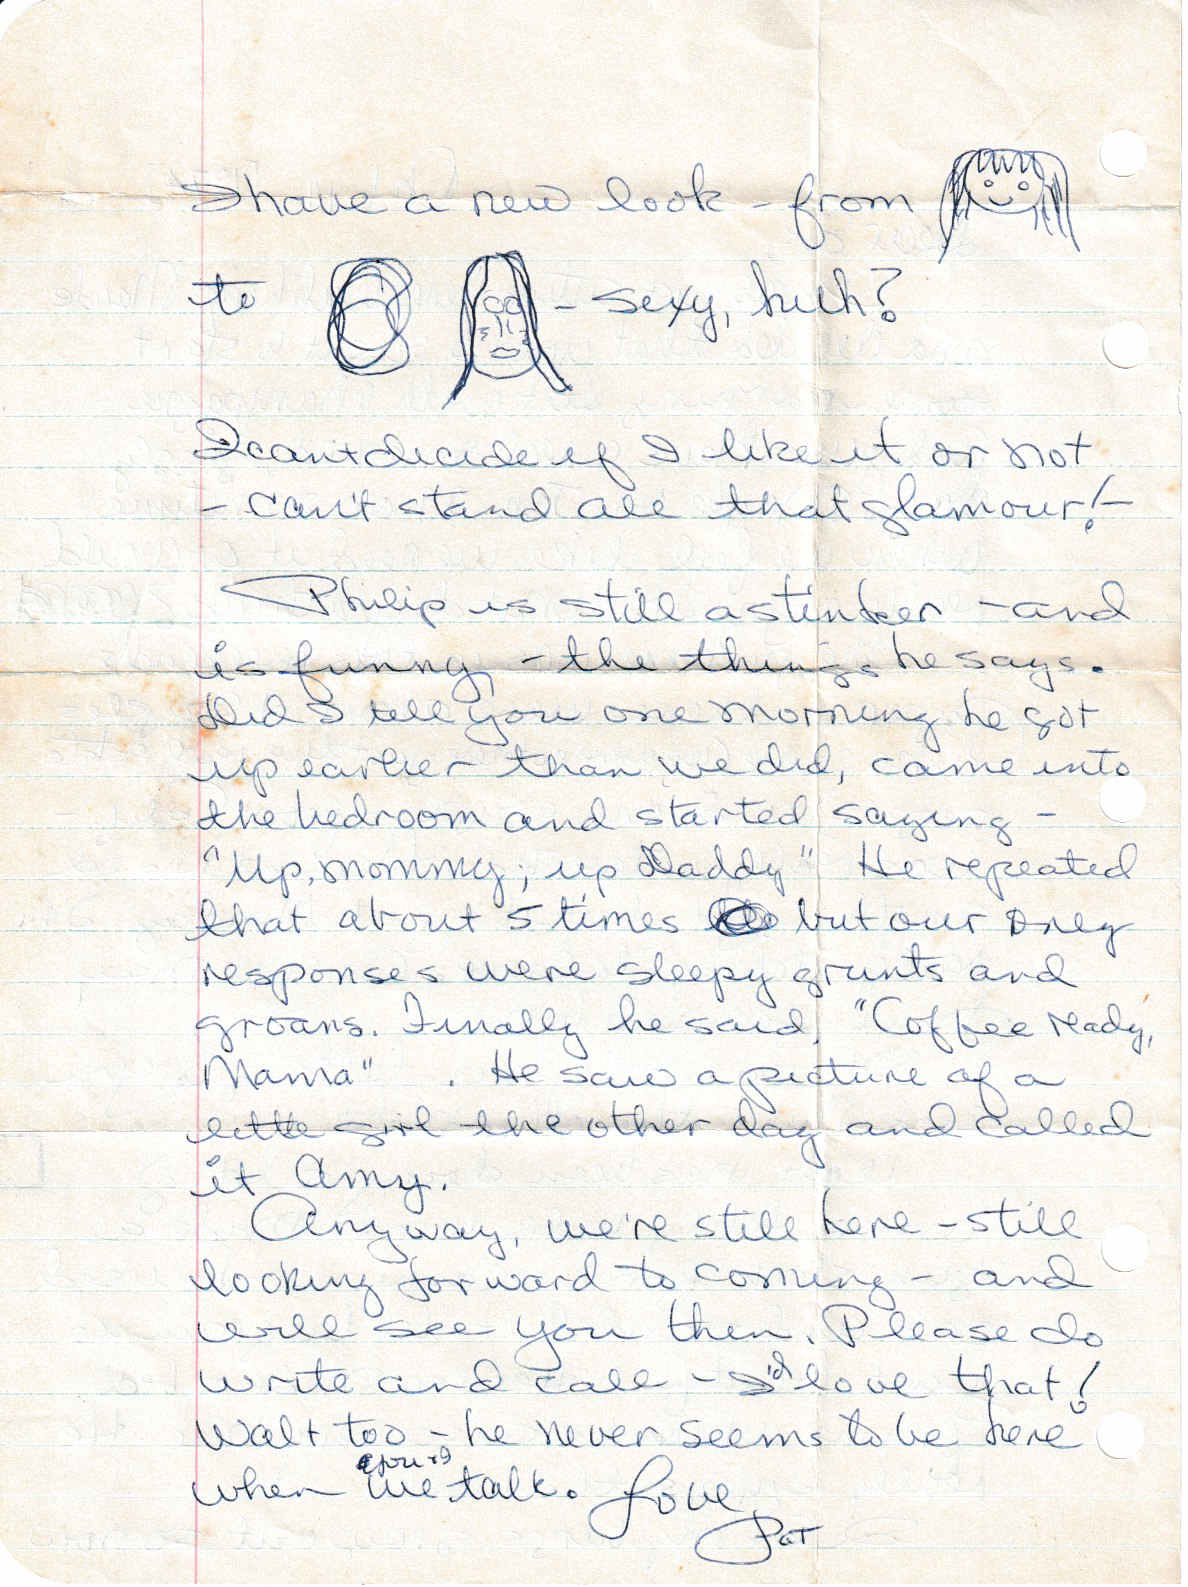 I have a new look - from
to - sexy, huh?
I can't decide if I like it or not
- can't stand all that glamour! -
Philip is still a stinker - and
is funny, - the things he says.
Did I tell you one morning he got
up earlier than we did, came into
the bedroom and started saying -
"Up, mommy; up Daddy" He repeated
that about 5 times but our only
responses were sleepy grunts and
groans. Finally he said, "Coffee ready,
Mama" . He saw a picture of a
little girl the other day and called
it Amy.
Anyway, we're still here - still
looking forward to coming - and
will see you then. Please do
write and call - I'd love that!
Walt too - he never seems to be here
when we talk. Love,
Pat